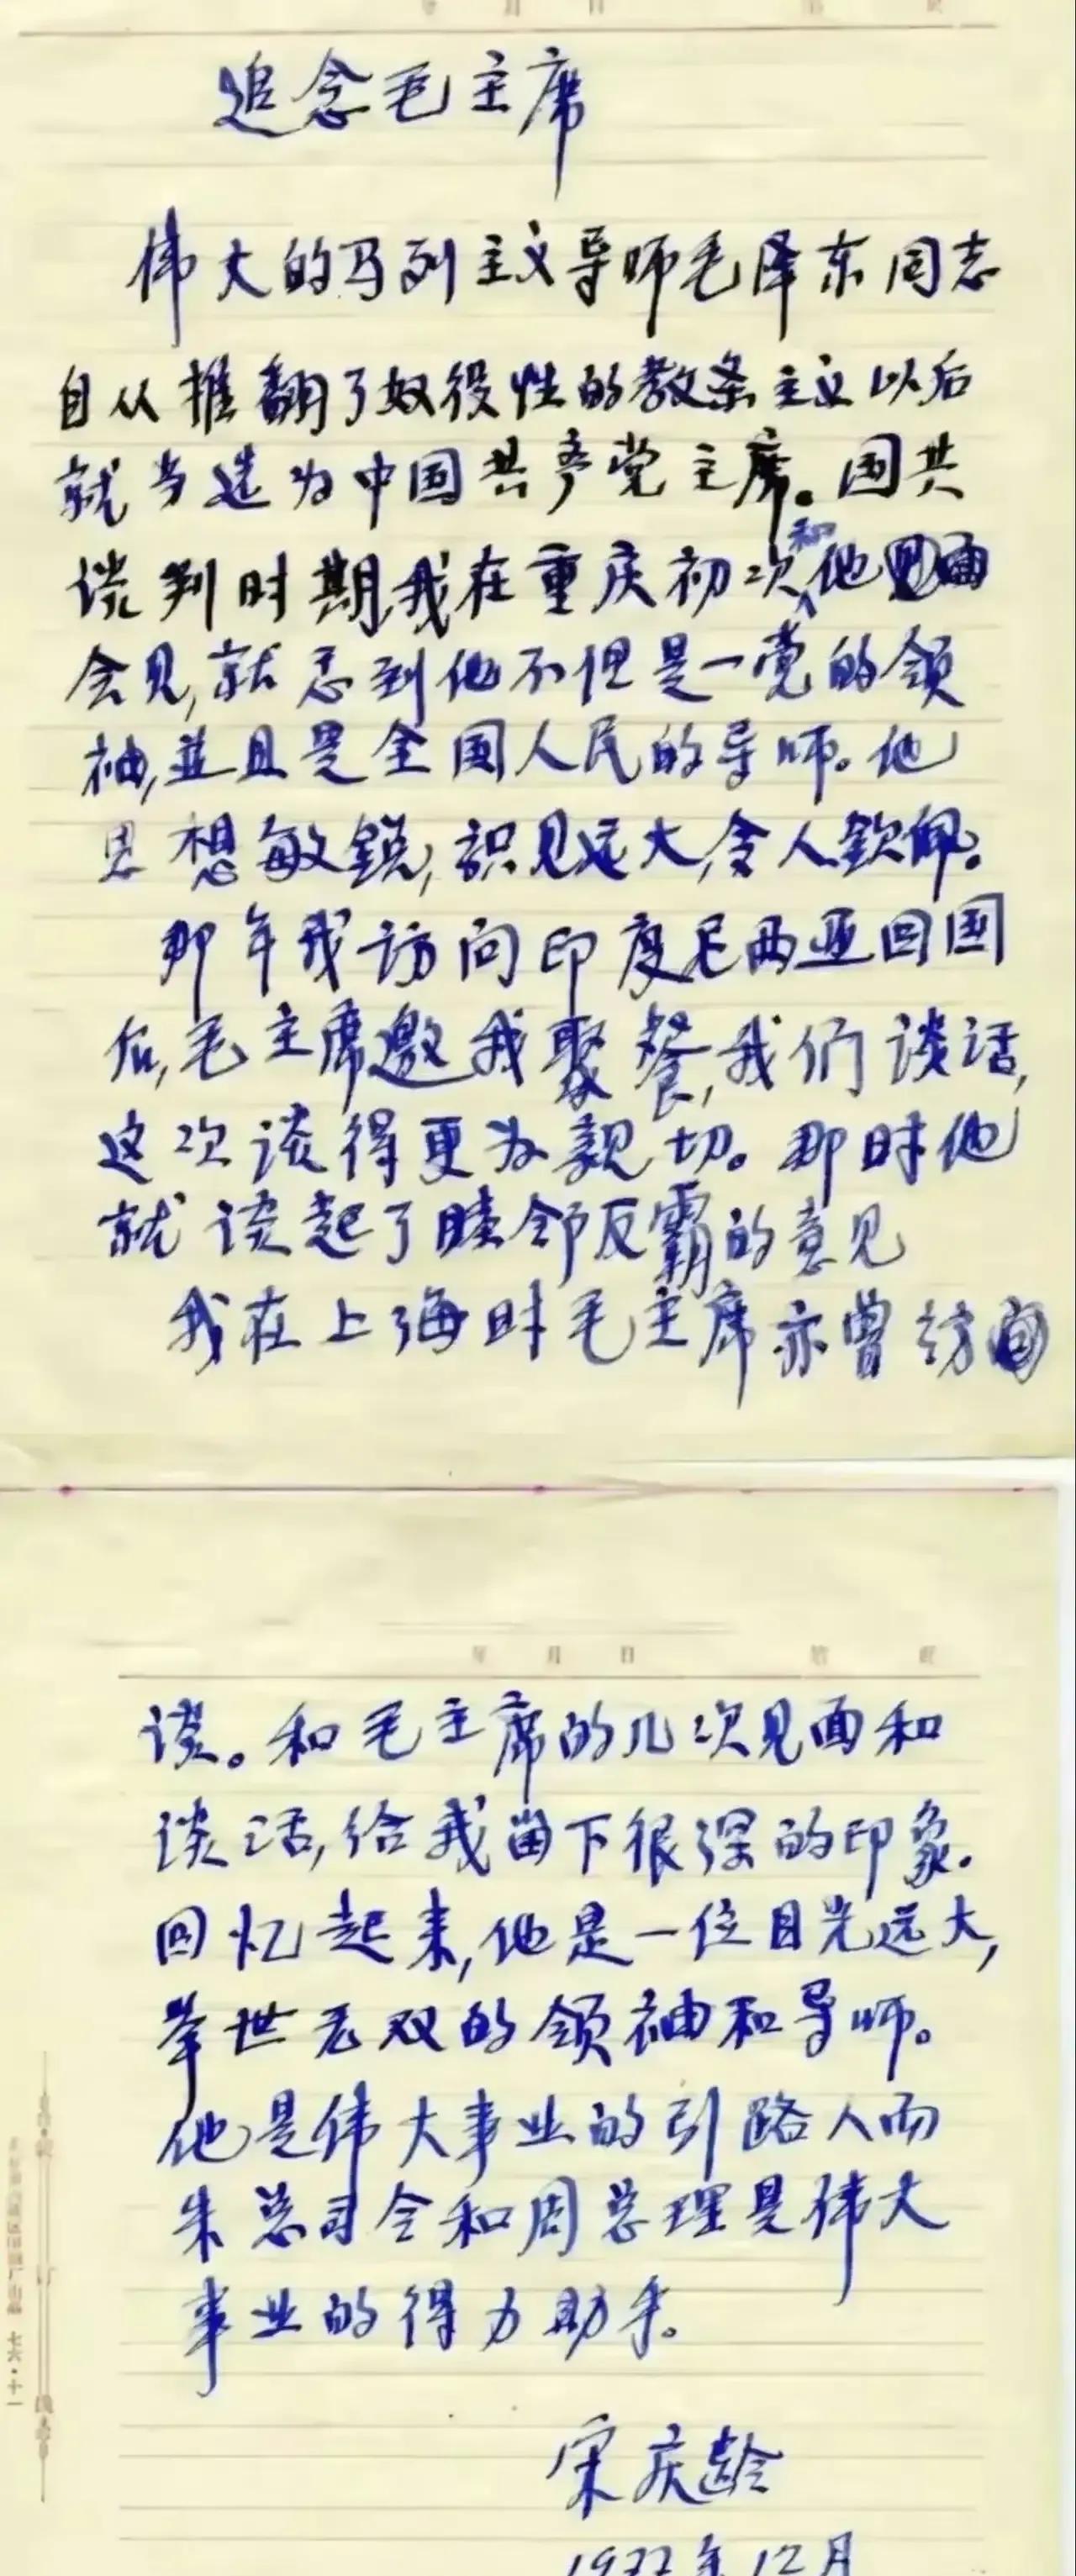 追念毛主席
伟大的马列主义导师毛泽东同志
自从推翻了奴役性的教条主义以后
就当选为中国共产党主席。国共
谈判时期,我在重庆初次和他
会见,就感到他不但是一党的领
袖,並且是全国人民的导师。他
思想敏锐,识见远大,令人钦佩。
那年我访问印度尼西亚回国
后,毛主席邀我聚餐,我们谈话,
这次谈得更为亲切。那时他
就谈起了睦邻反霸的意见
我在上海时毛主席亦曾访
年 月 日
谈。和毛主席的几次见面和
谈话,给我留下很深的印象.
回忆起来,他是一位目光远大,
举世无双的领袖和导师。
他是伟大事业的引路人而
朱总司令和周总理是伟大
事业的得力助手。
宋庆龄
1977年12月
七六·十一